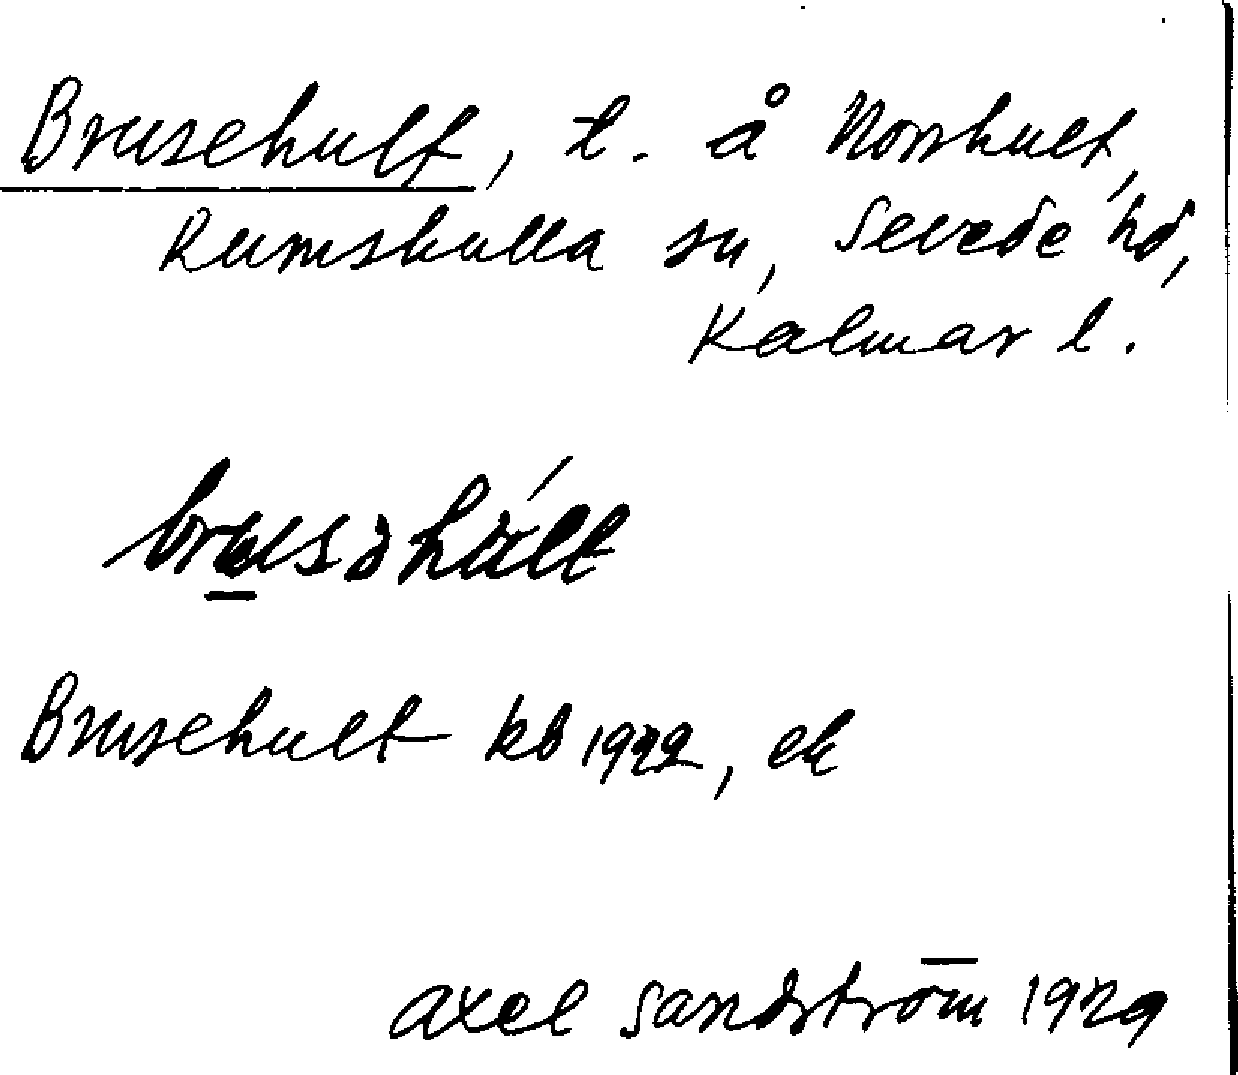 Brusehult, t. å Norrhult,
Rumskulla sn, Sevede hd,
Kalmar l.
Brusehult kb 1922, ek
Axel Sandström 1929